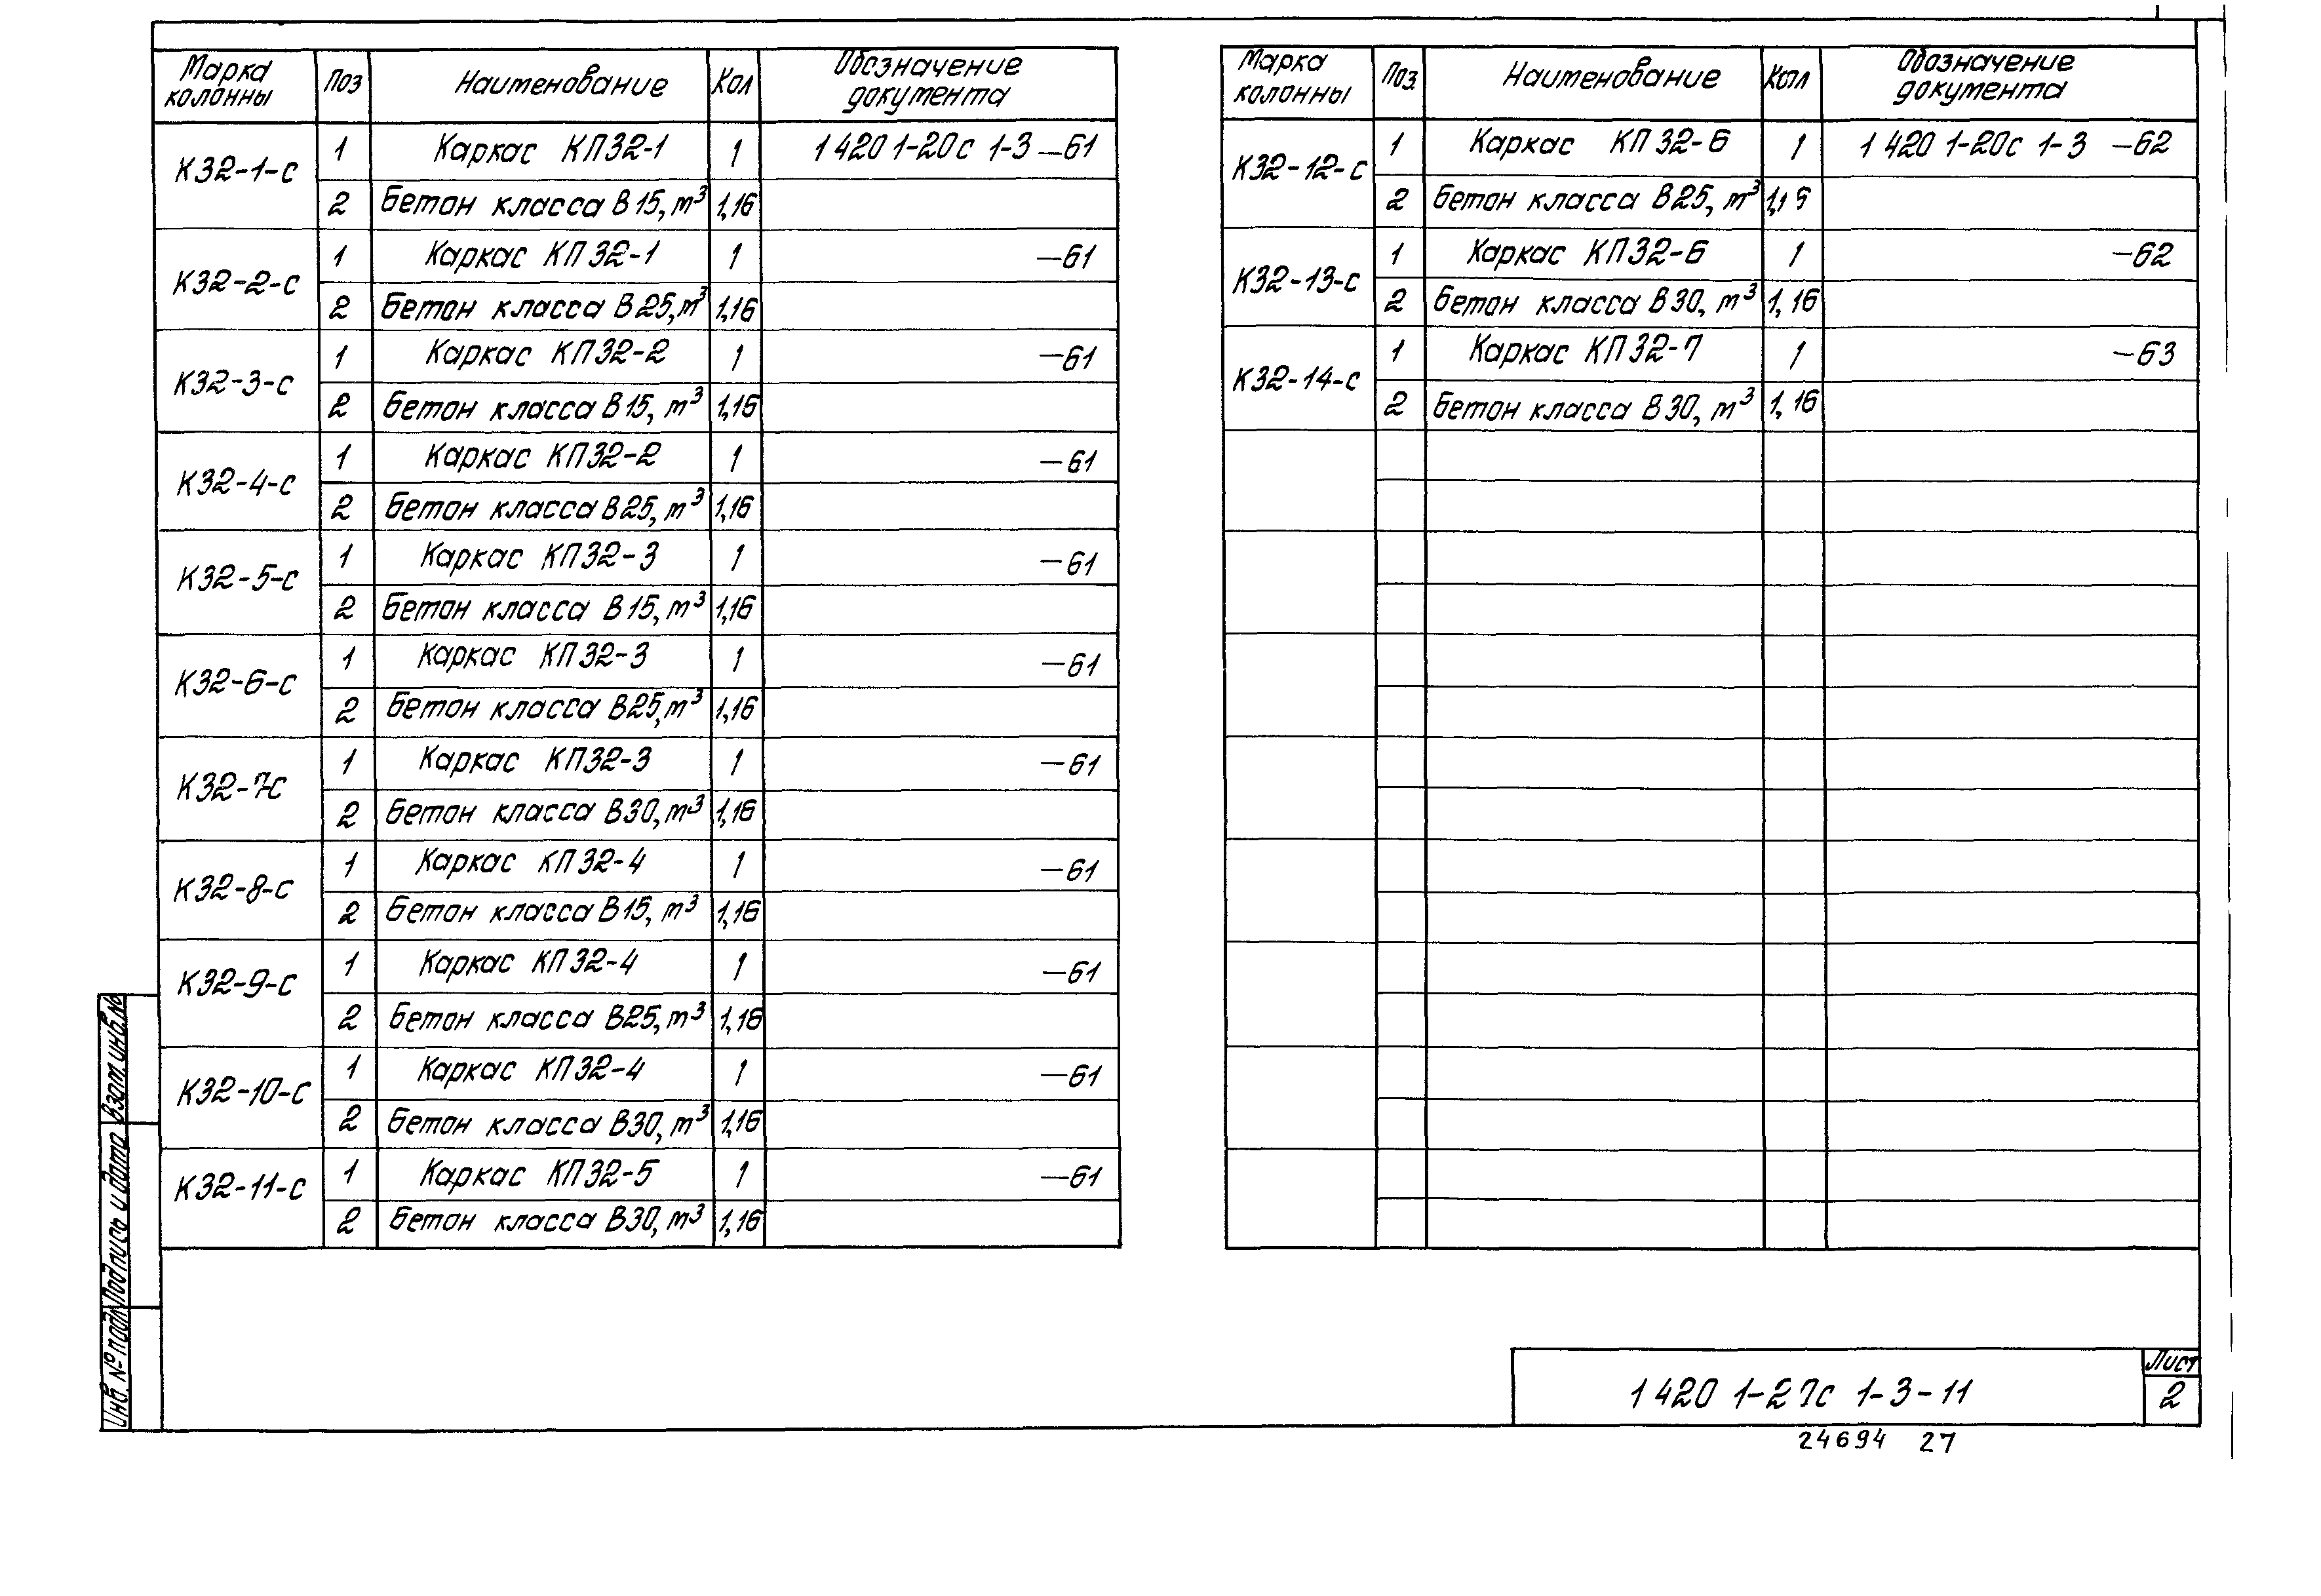 Марка колонны Поз Наименование Кол Обозначение документа
К32-1-с 1 Каркас КП32-1 1 1 420 1-20с 1-3 —61
2 Бетон класса В15, m³ 1,16
К32-2-с 1 Каркас КП32-1 1 —61
2 Бетон класса В25, m³ 1,16
К32-3-с 1 Каркас КП32-2 1 —61
2 Бетон класса В15, m³ 1,16
К32-4-с 1 Каркас КП32-2 1 —61
2 Бетон класса В25, m³ 1,16
К32-5-с 1 Каркас КП32-3 1 —61
2 Бетон класса В15, m³ 1,16
К32-6-с 1 Каркас КП32-3 1 —61
2 Бетон класса В25, m³ 1,16
К32-7с 1 Каркас КП32-3 1 —61
2 Бетон класса В30, m³ 1,16
К32-8-с 1 Каркас КП32-4 1 —61
2 Бетон класса В15, m³ 1,16
К32-9-с 1 Каркас КП32-4 1 —61
2 Бетон класса В25, m³ 1,16
К32-10-с 1 Каркас КП32-4 1 —61
2 Бетон класса В30, m³ 1,16
К32-11-с 1 Каркас КП32-5 1 —61
2 Бетон класса В30, m³ 1,16
Марка колонны Поз. Наименование Кол Обозначение документа
К32-12-с 1 Каркас КП32-6 1 1 420 1-20с 1-3 —62
2 Бетон класса В25, m³
К32-13-с 1 Каркас КП32-6 1 —62
2 Бетон класса В30, m³ 1,16
К32-14-с 1 Каркас КП32-7 1 —63
2 Бетон класса В30, m³ 1,16
Инв. № подл Подпись и дата Взам. инв. №
1 420 1-2 с 1-3-11
Лист
2
24694 27